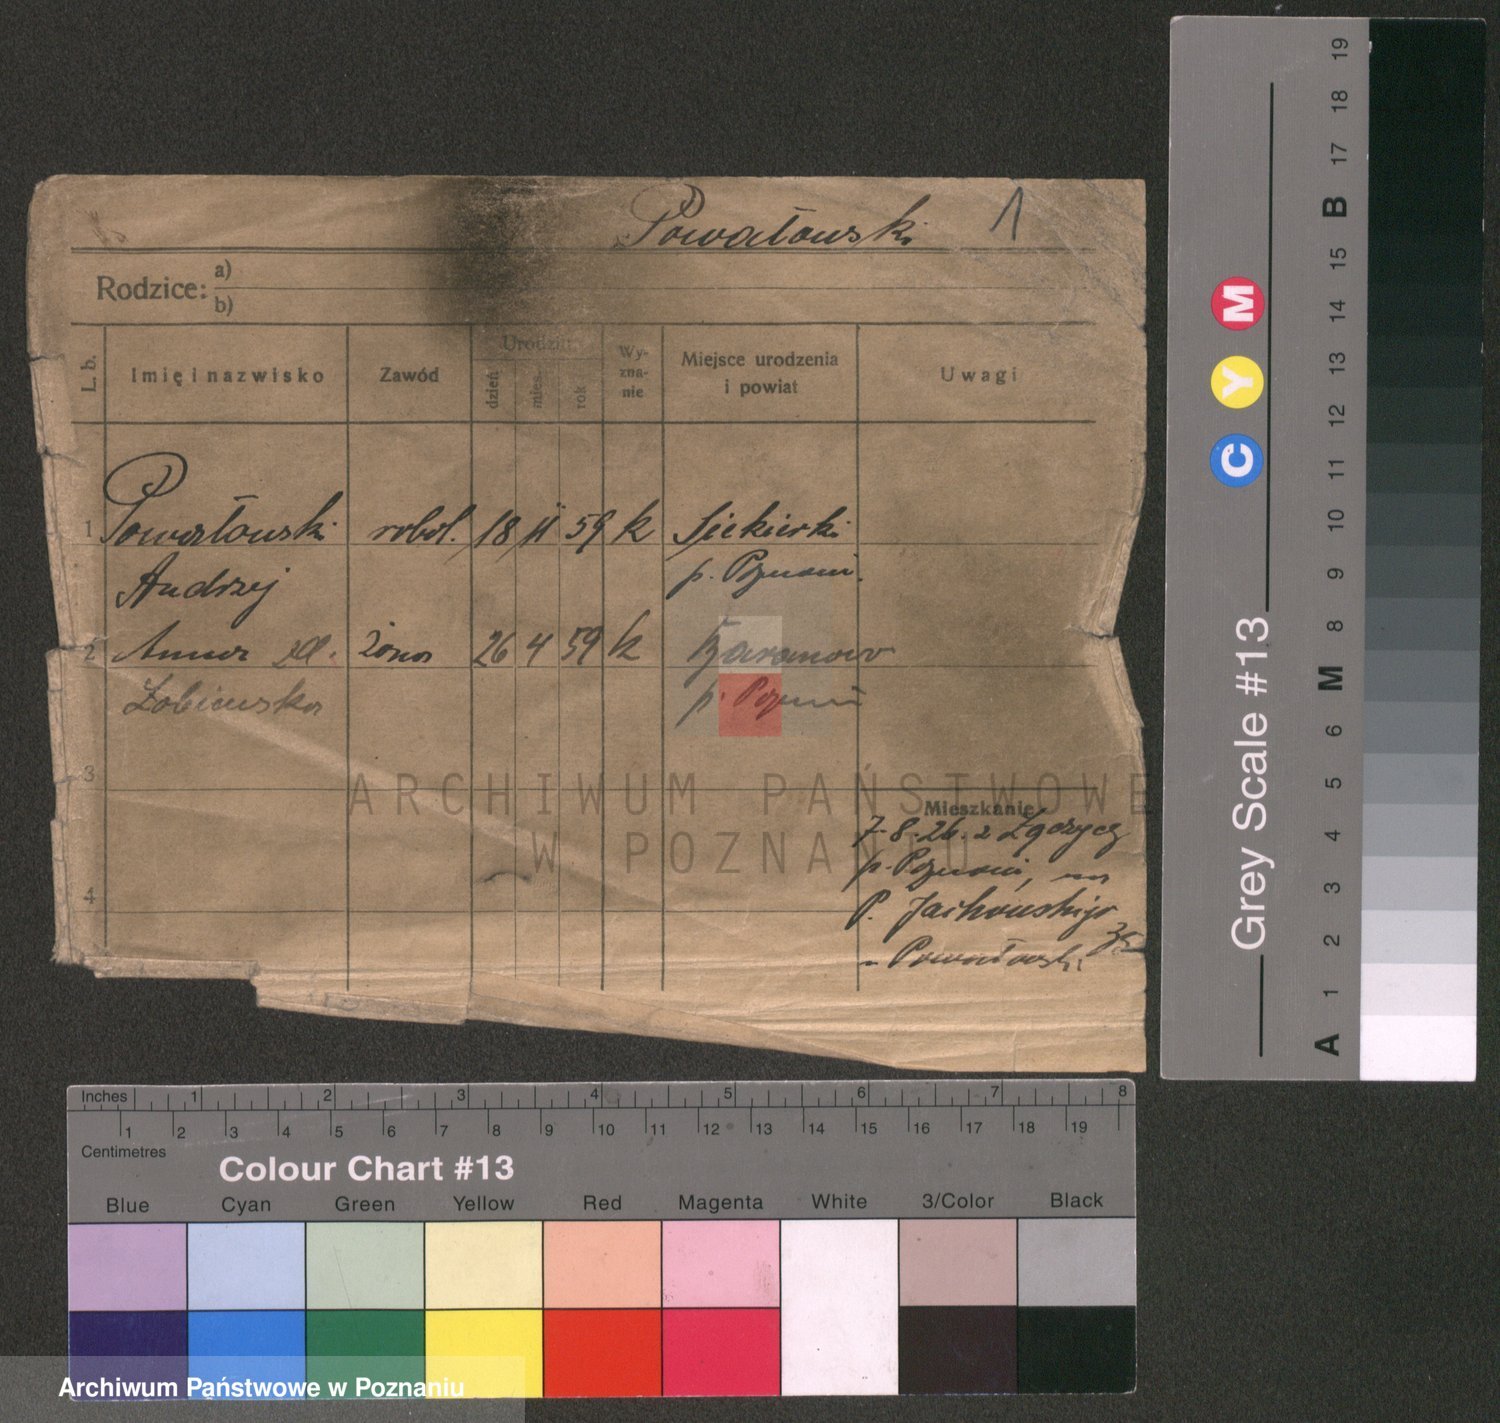 Powałowski 1
Rodzice: a)
b)
L. b. Imię i nazwisko Zawód Urodzin dzień mies. rok Wy-zna-nie Miejsce urodzenia i powiat Uwagi
1 Powałowski robot. 18 11 59 k Siekierki
Andrzej p. Poznań.
2 Anna zd. żona 26 4 59 k Baranowo
Łobiewska p. Poznań
3
4
Mieszkanie
7.8.26. z
p. Poznań, na
P. Jackowskiego 35
u Powałowski
ARCHIWUM PAŃSTWOWE
W POZNANIU
Grey Scale #13
C Y M
A 1 2 3 4 5 6 M 8 9 10 11 12 13 14 15 B 17 18 19
Inches 1 2 3 4 5 6 7 8
Centimetres 1 2 3 4 5 6 7 8 9 10 11 12 13 14 15 16 17 18 19
Colour Chart #13
Blue Cyan Green Yellow Red Magenta White 3/Color Black
Archiwum Państwowe w Poznaniu